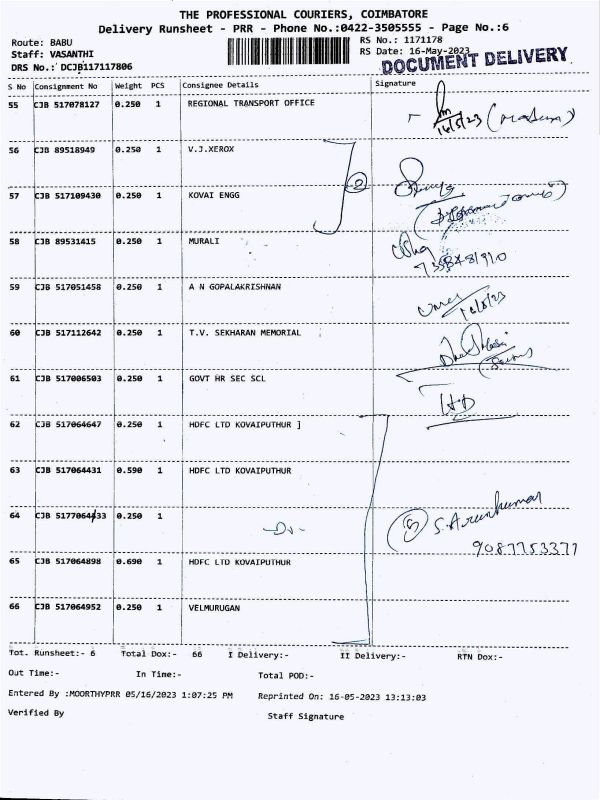 THE PROFESSIONAL COURIERS, COIMBATORE
Delivery Runsheet - PRR - Phone No.:0422-3505555 - Page No.:6
Route: BABU
Staff: VASANTHI
DRS No.: DCJB117117806
RS No.: 1171178
RS Date: 16-May-2023
DOCUMENT DELIVERY
S No Consignment No Weight PCS Consignee Details Signature
55 CJB 517078127 0.250 1 REGIONAL TRANSPORT OFFICE
16/5/23
56 CJB 89518949 0.250 1 V.J.XEROX
57 CJB 517109430 0.250 1 KOVAI ENGG
58 CJB 89531415 0.250 1 MURALI
59 CJB 517051458 0.250 1 A N GOPALAKRISHNAN
16/5/23
60 CJB 517112642 0.250 1 T.V. SEKHARAN MEMORIAL
61 CJB 517006503 0.250 1 GOVT HR SEC SCL
62 CJB 517064647 0.250 1 HDFC LTD KOVAIPUTHUR ]
63 CJB 517064431 0.590 1 HDFC LTD KOVAIPUTHUR
64 CJB 5177064433 0.250 1
-Do-
5 S. Arunkumar
9087753377
65 CJB 517064898 0.690 1 HDFC LTD KOVAIPUTHUR
66 CJB 517064952 0.250 1 VELMURUGAN
Tot. Runsheet:- 6 Total Dox:- 66 I Delivery:- II Delivery:- RTN Dox:-
Out Time:- In Time:- Total POD:-
Entered By :MOORTHYPRR 05/16/2023 1:07:25 PM Reprinted On: 16-05-2023 13:13:03
Verified By Staff Signature